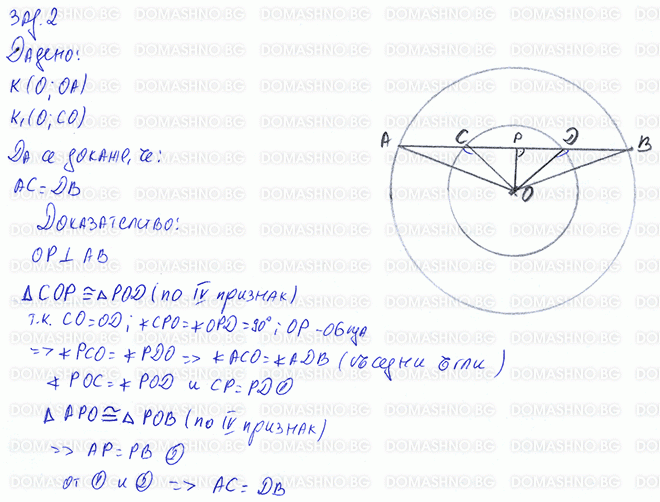 Зад. 2
Дадено:
K(O; OA)
K₁(O; CO)
Да се докаже, че:
AC = DB
Доказателство:
OP ⊥ AB
△ COP ≅ △ POD (по IV признак)
т.к. CO = OD; ∢CPO = ∢OPD = 90°; OP - обща
=> ∢PCO = ∢PDO => ∢ACO = ∢ADB (съседни ъгли)
∢ POC = ∢ POD и CP = PD ①
△ APO ≅ △ POB (по IV признак)
=> AP = PB ②
от ① и ② => AC = DB
A C P D B
O
DOMASHNO.BG